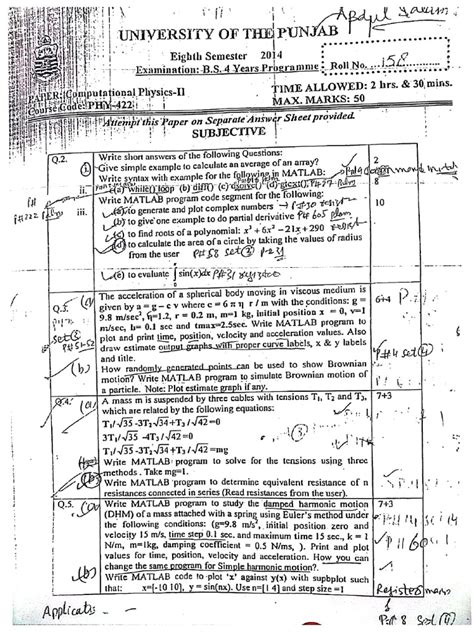 Abdul Salam
UNIVERSITY OF THE PUNJAB
Eighth Semester 2014
Examination: B.S. 4 Years Programme
Roll No. 158
PAPER: Computational Physics-II
Course Code: PHY-422
TIME ALLOWED: 2 hrs. & 30 mins.
MAX. MARKS: 50
Attempt this Paper on Separate Answer Sheet provided.
SUBJECTIVE
Q.2. Write short answers of the following Questions:
Give simple example to calculate an average of an array? 2
ii. Write syntax with example for the following in MATLAB: 8
(a) while loop (b) diff() (c) dsolve() (d) gtext()
iii. Write MATLAB program code segment for the following: 10
(a) to generate and plot complex numbers
(b) to give one example to do partial derivative
(c) to find roots of a polynomial: x³ + 6x² - 21x + 290
(d) to calculate the area of a circle by taking the values of radius
from the user
(e) to evaluate ∫ sin(x)dx
Q.3. (a) The acceleration of a spherical body moving in viscous medium is 6+4
given by a = g – c v where c = 6 π η r / m with the conditions: g =
9.8 m/sec², η=1.2, r = 0.2 m, m=1 kg, initial position x = 0, v=1
m/sec, h= 0.1 sec and tmax=2.5sec. Write MATLAB program to
plot and print time, position, velocity and acceleration values. Also
draw estimate output graphs with proper curve labels, x & y labels
and title.
(b) How randomly generated points can be used to show Brownian
motion? Write MATLAB program to simulate Brownian motion of
a particle. Note: Plot estimate graph if any.
Q.4. (a) A mass m is suspended by three cables with tensions T₁, T₂ and T₃, 7+3
which are related by the following equations:
T₁/√35 -3T₂√34+T₃/√42=0
3T₁/√35 -4T₃/√42=0
T₁/√35 -3T₂√34+T₃/√42=mg
Write MATLAB program to solve for the tensions using three
methods . Take mg=1.
(b) Write MATLAB program to determine equivalent resistance of n
resistances connected in series (Read resistances from the user).
Q.5. (a) Write MATLAB program to study the damped harmonic motion 7+3
(DHM) of a mass attached with a spring using Euler's method under
the following conditions: (g=9.8 m/s², initial position zero and
velocity 15 m/s, time step 0.1 sec. and maximum time 15 sec., k = 1
N/m, m=1kg, damping coefficient = 0.5 N/ms, ). Print and plot
values for time, position, velocity and acceleration. How you can
change the same program for Simple harmonic motion?.
(b) Write MATLAB code to plot 'x' against y(x) with supbplot such
that: x=[-10 10], y = sin(nx). Use n=[1 4] and step size =1